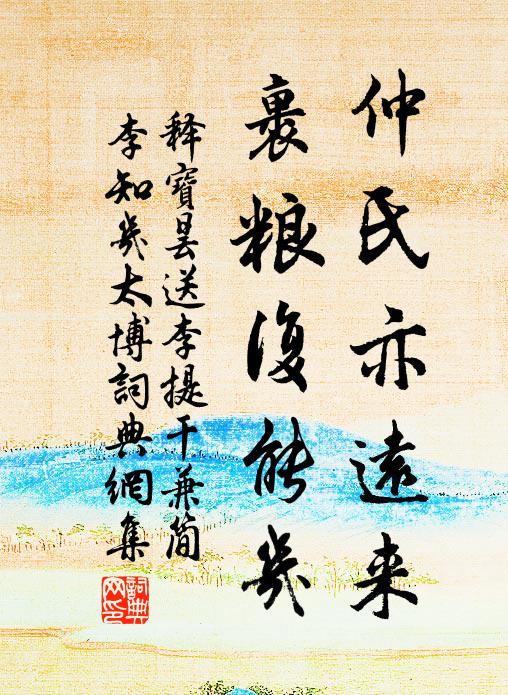 仲氏亦遠来
裹粮復能幾
释寶曇送李提干兼簡
李知幾太博詞典網集
詞典網印